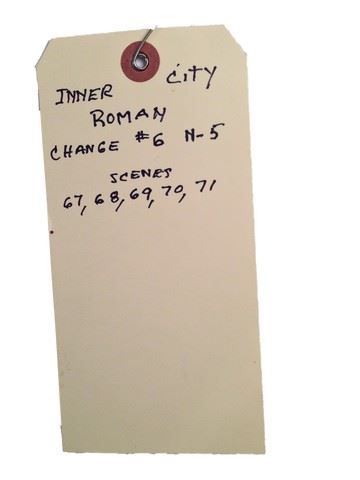 INNER CITY
ROMAN
CHANGE #6 N-5
SCENES
67, 68, 69, 70, 71